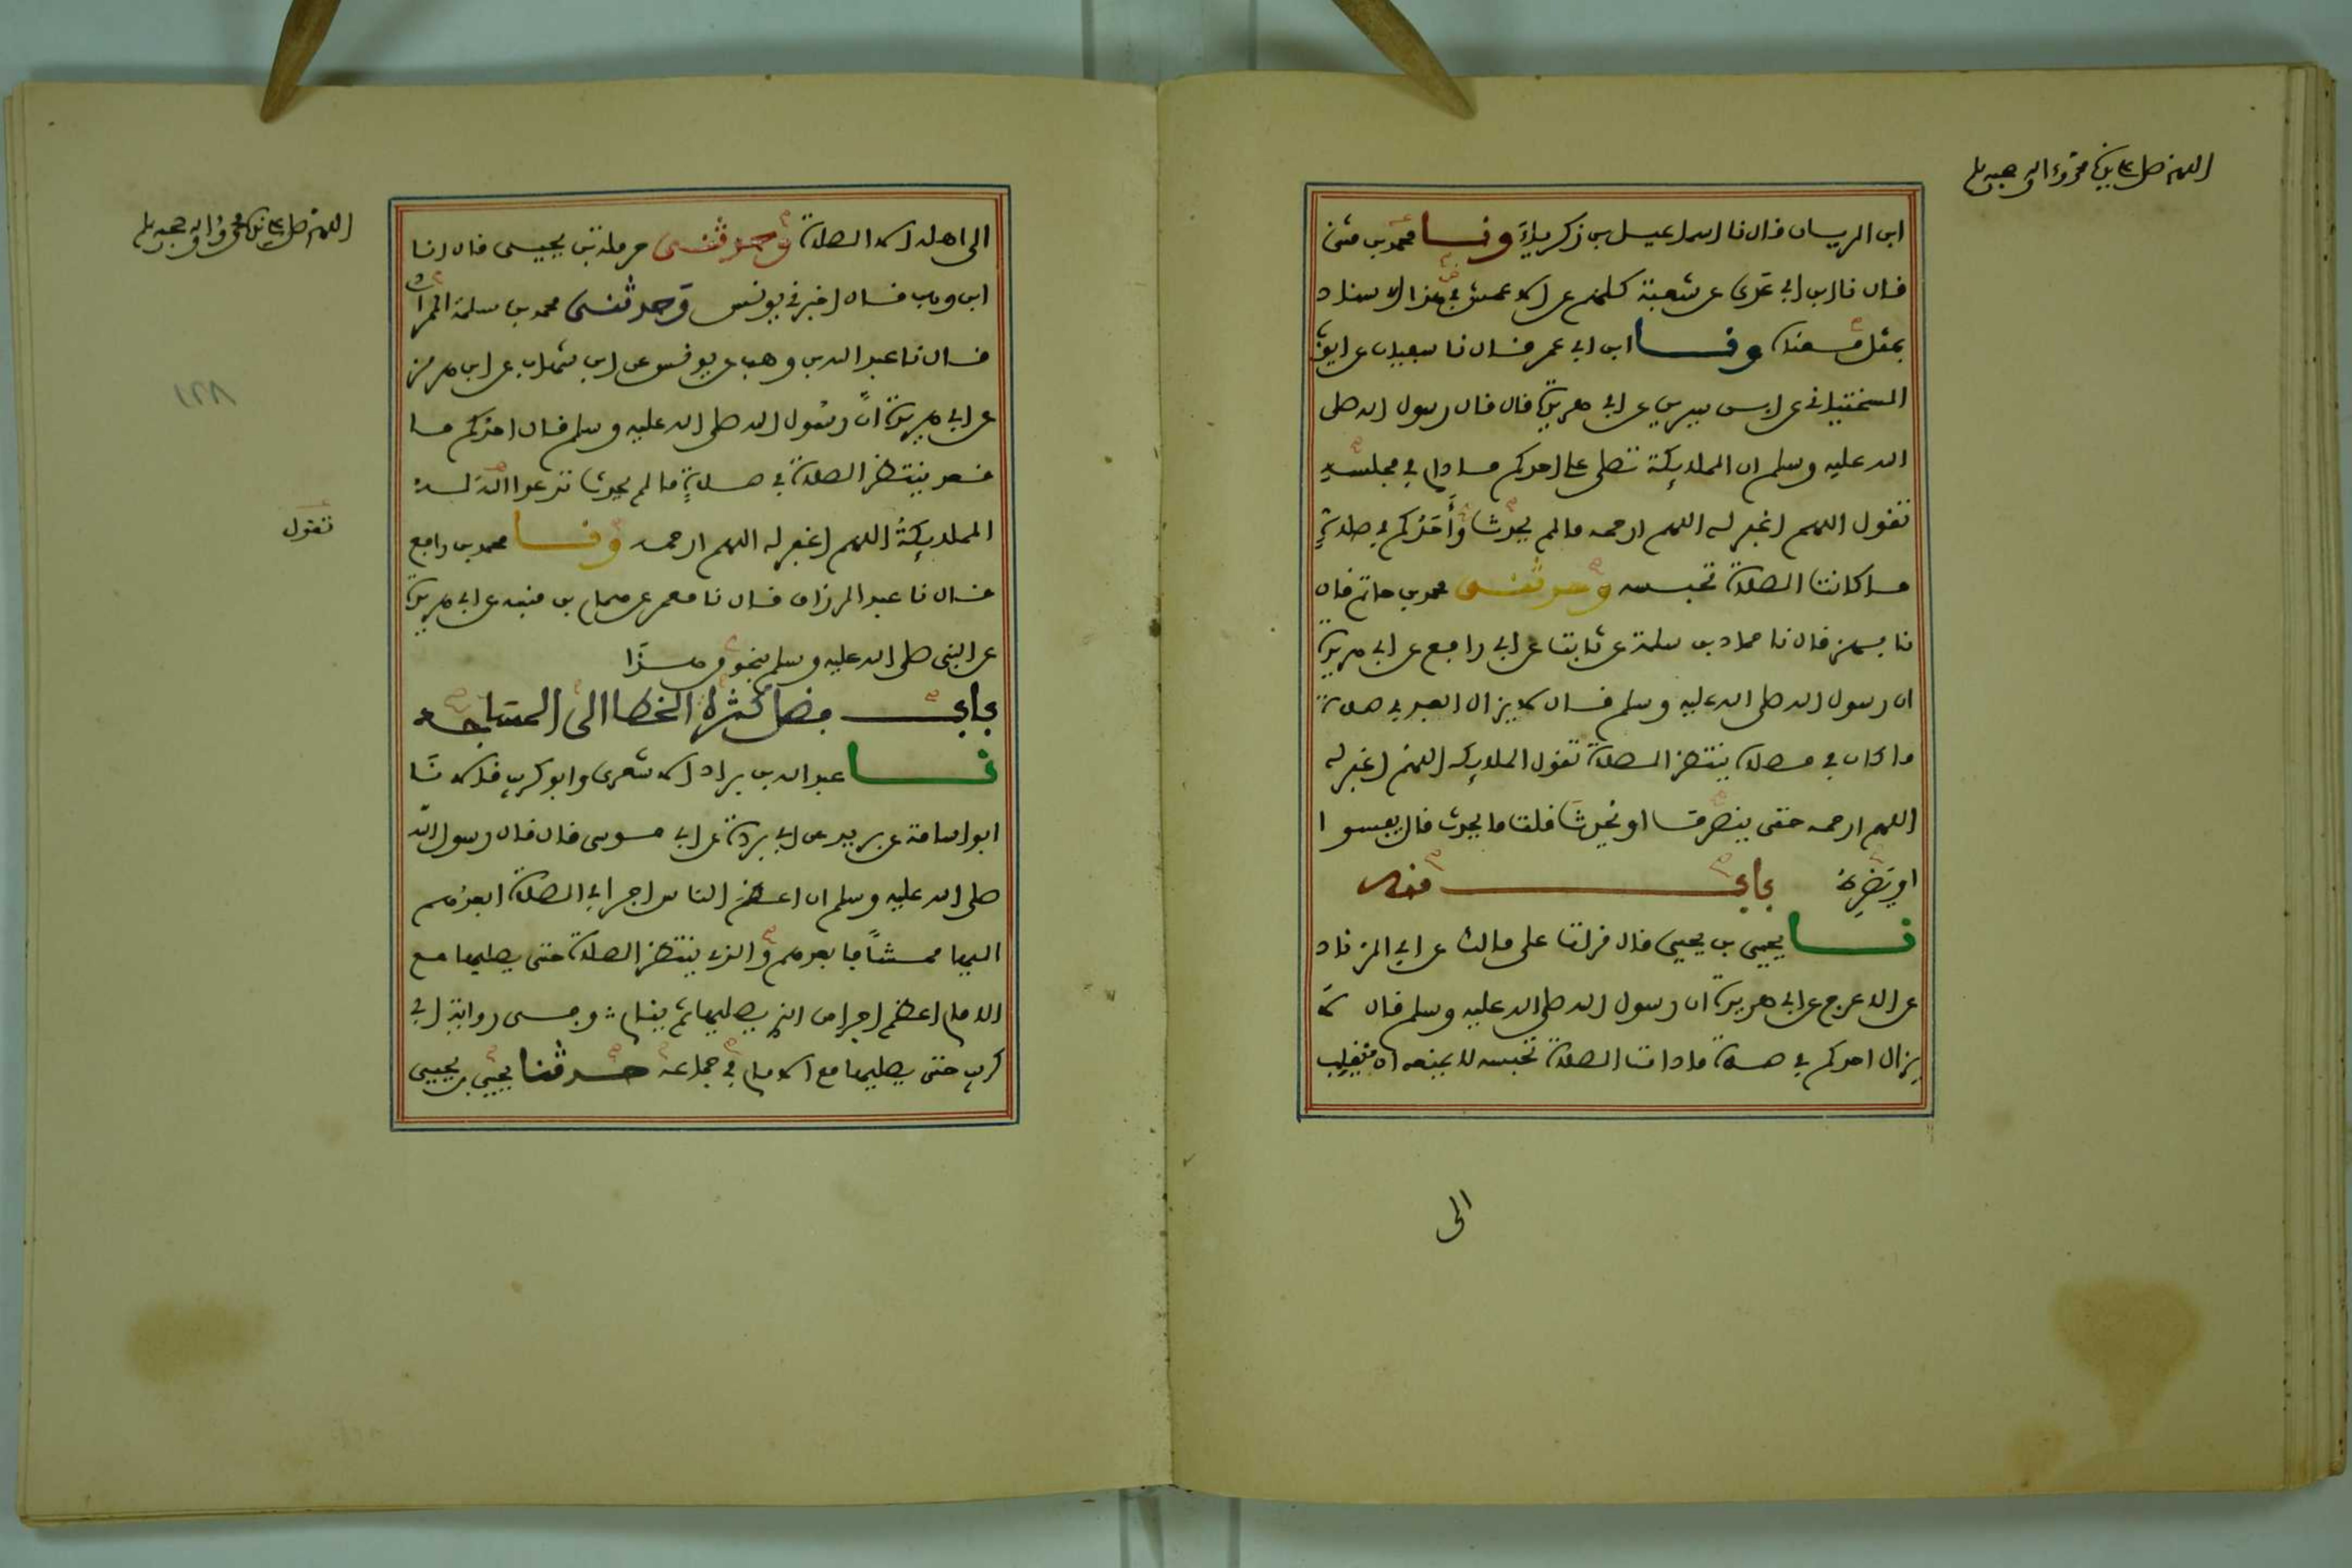 اللهم صل على نبينا محمد واله وصحبه وسلم
ابن الريان قال نا اسماعيل بن زكرياء ونا محمد بن مثنى
قال نا ابن ابي عدي عن شعبة كلهم عن الاعمش في هذا الاسناد
بمثل معناه ونا ابن ابي عمر قال نا سفيان عن ايوب
السختياني عن ابن سيرين عن ابي هريرة قال قال رسول الله صلى
الله عليه وسلم ان الملايكة تصلي على احدكم ما دام في مجلسه
تقول اللهم اغفر له اللهم ارحمه ما لم يحدث وأحدكم في صلاة
ما كانت الصلاة تحبسه وحدثني محمد بن حاتم قال
نا بهز قال نا حماد بن سلمة عن ثابت عن ابي رافع عن ابي هريرة
ان رسول الله صلى الله عليه وسلم قال لا يزال العبد في صلاة
ما كان في مصلاه ينتظر الصلاة تقول الملايكه اللهم اغفر له
اللهم ارحمه حتى ينصرف او يحدث قلت ما يحدث قال يفسوا
او يضرط باب منه
نا يحيى بن يحيى قال قرات على مالك عن ابي الزناد
عن الاعرج عن ابي هريرة ان رسول الله صلى الله عليه وسلم قال لا
يزال احدكم في صلاة ما دامت الصلاة تحبسه لا يمنعه ان ينقلب
الى
اللهم صل على نبينا محمد واله وصحبه وسلم
الى اهله الا الصلاة وحدثني حرملة بن يحيى قال انا
ابن وهب قال اخبرني يونس وحدثني محمد بن سلمة المرادي
قال نا عبد الله بن وهب عن يونس عن ابن شهاب عن ابن هرمز
عن ابي هريرة انّ رسول الله صلى الله عليه وسلم قال احدكم ما
قعد ينتظر الصلاة في صلاة ما لم يحدث تدعوا الله له
تقول
الملايكةُ اللهم اغفر له اللهم ارحمه ونا محمد بن رافع
قال نا عبد الرزاق قال نا معمر عن همام بن منبه عن ابي هريرة
عن النبي صلى الله عليه وسلم بنحو هذا
باب فضل كثرة الخطا الى المساجد
نا عبد الله بن براد الاشعري وابو كريب قالا نا
ابو اسامة عن بريد عن ابي بردة عن ابي موسى قال قال رسول الله
صلى الله عليه وسلم ان اعظم الناس اجرا في الصلاة ابعدهم
اليها ممشاً فابعدهم والذي ينتظر الصلاة حتى يصليها مع
الامام اعظم اجرا من الذي يصليها ثم ينام وفي رواية ابي
كريب حتى يصليها مع الامام في جماعة حدثنا يحيى بن يحيى